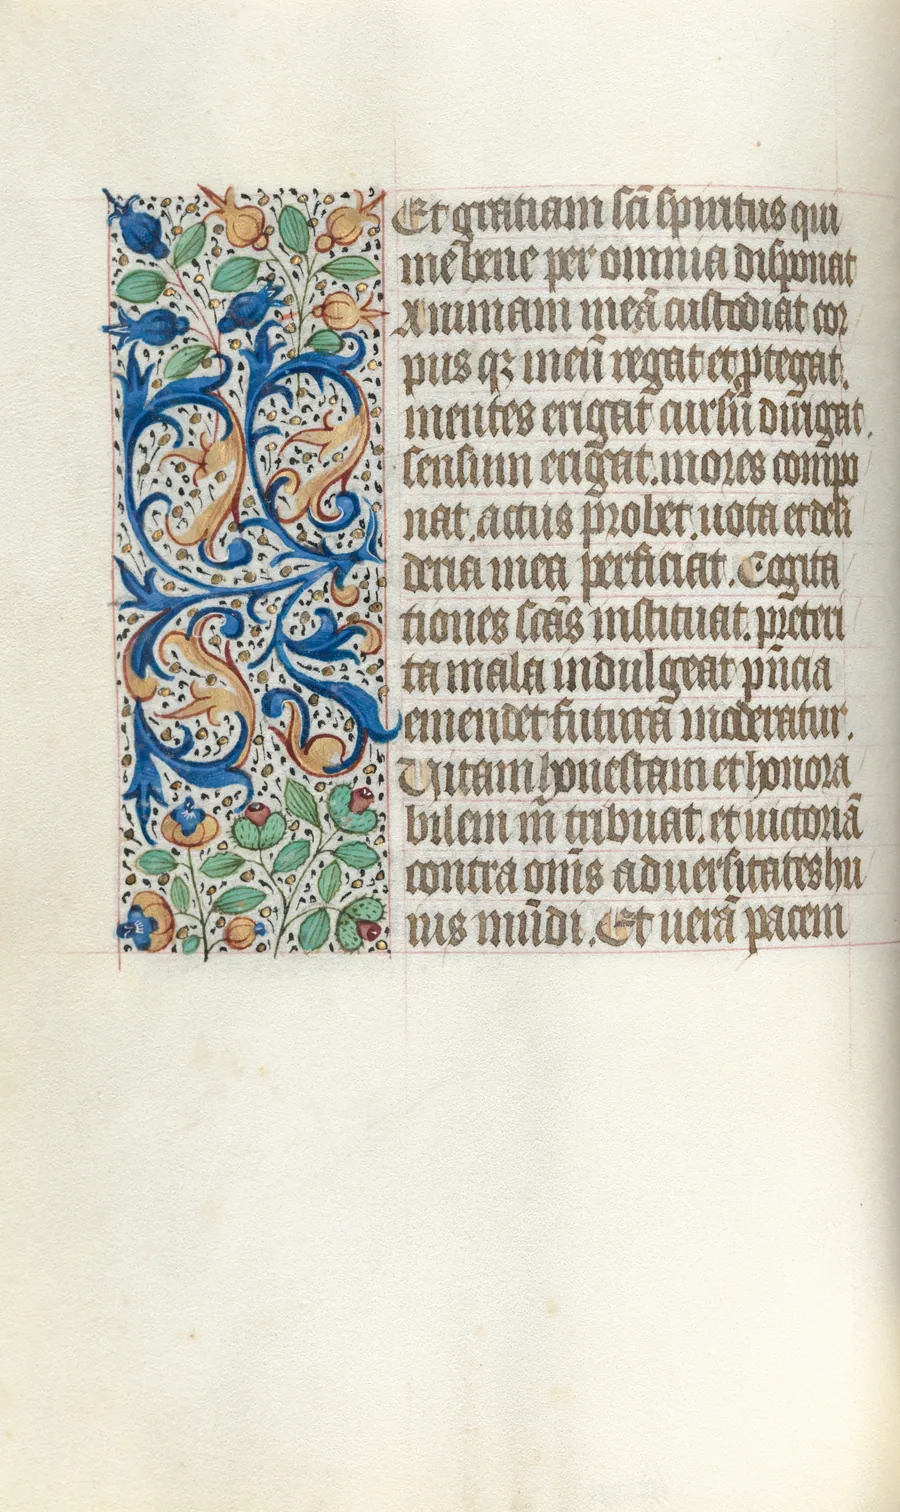 Et gratiam sc̄i spiritus qui
me bene per omnia disponat
Animam meā custodiat cor
pus qȝ meū regat et ꝓtegat.
mentes erigat cursū dirigat.
sensum erigat. mores compo
nat. actus probet. uota et desi
deria mea perficiat. Cogita
tiones scās instituat. preteri
ta mala indulgeat pn̄cia
emendet futurā moderatur.
Uitam honestam et honora
bilem m̄ tribuat. et uictoriā
contra om̄s aduersitates hu
ius mūdi. Et uerā pacem